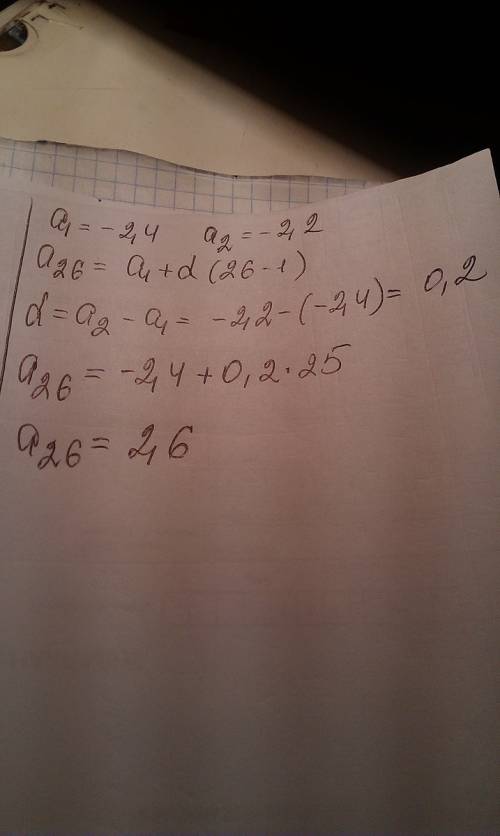 a₁ = -2,4 a₂ = -2,2
a₂₆ = a₁ + d (26 - 1)
d = a₂ - a₁ = -2,2 - (-2,4) = 0,2
a₂₆ = -2,4 + 0,2 · 25
a₂₆ = 2,6